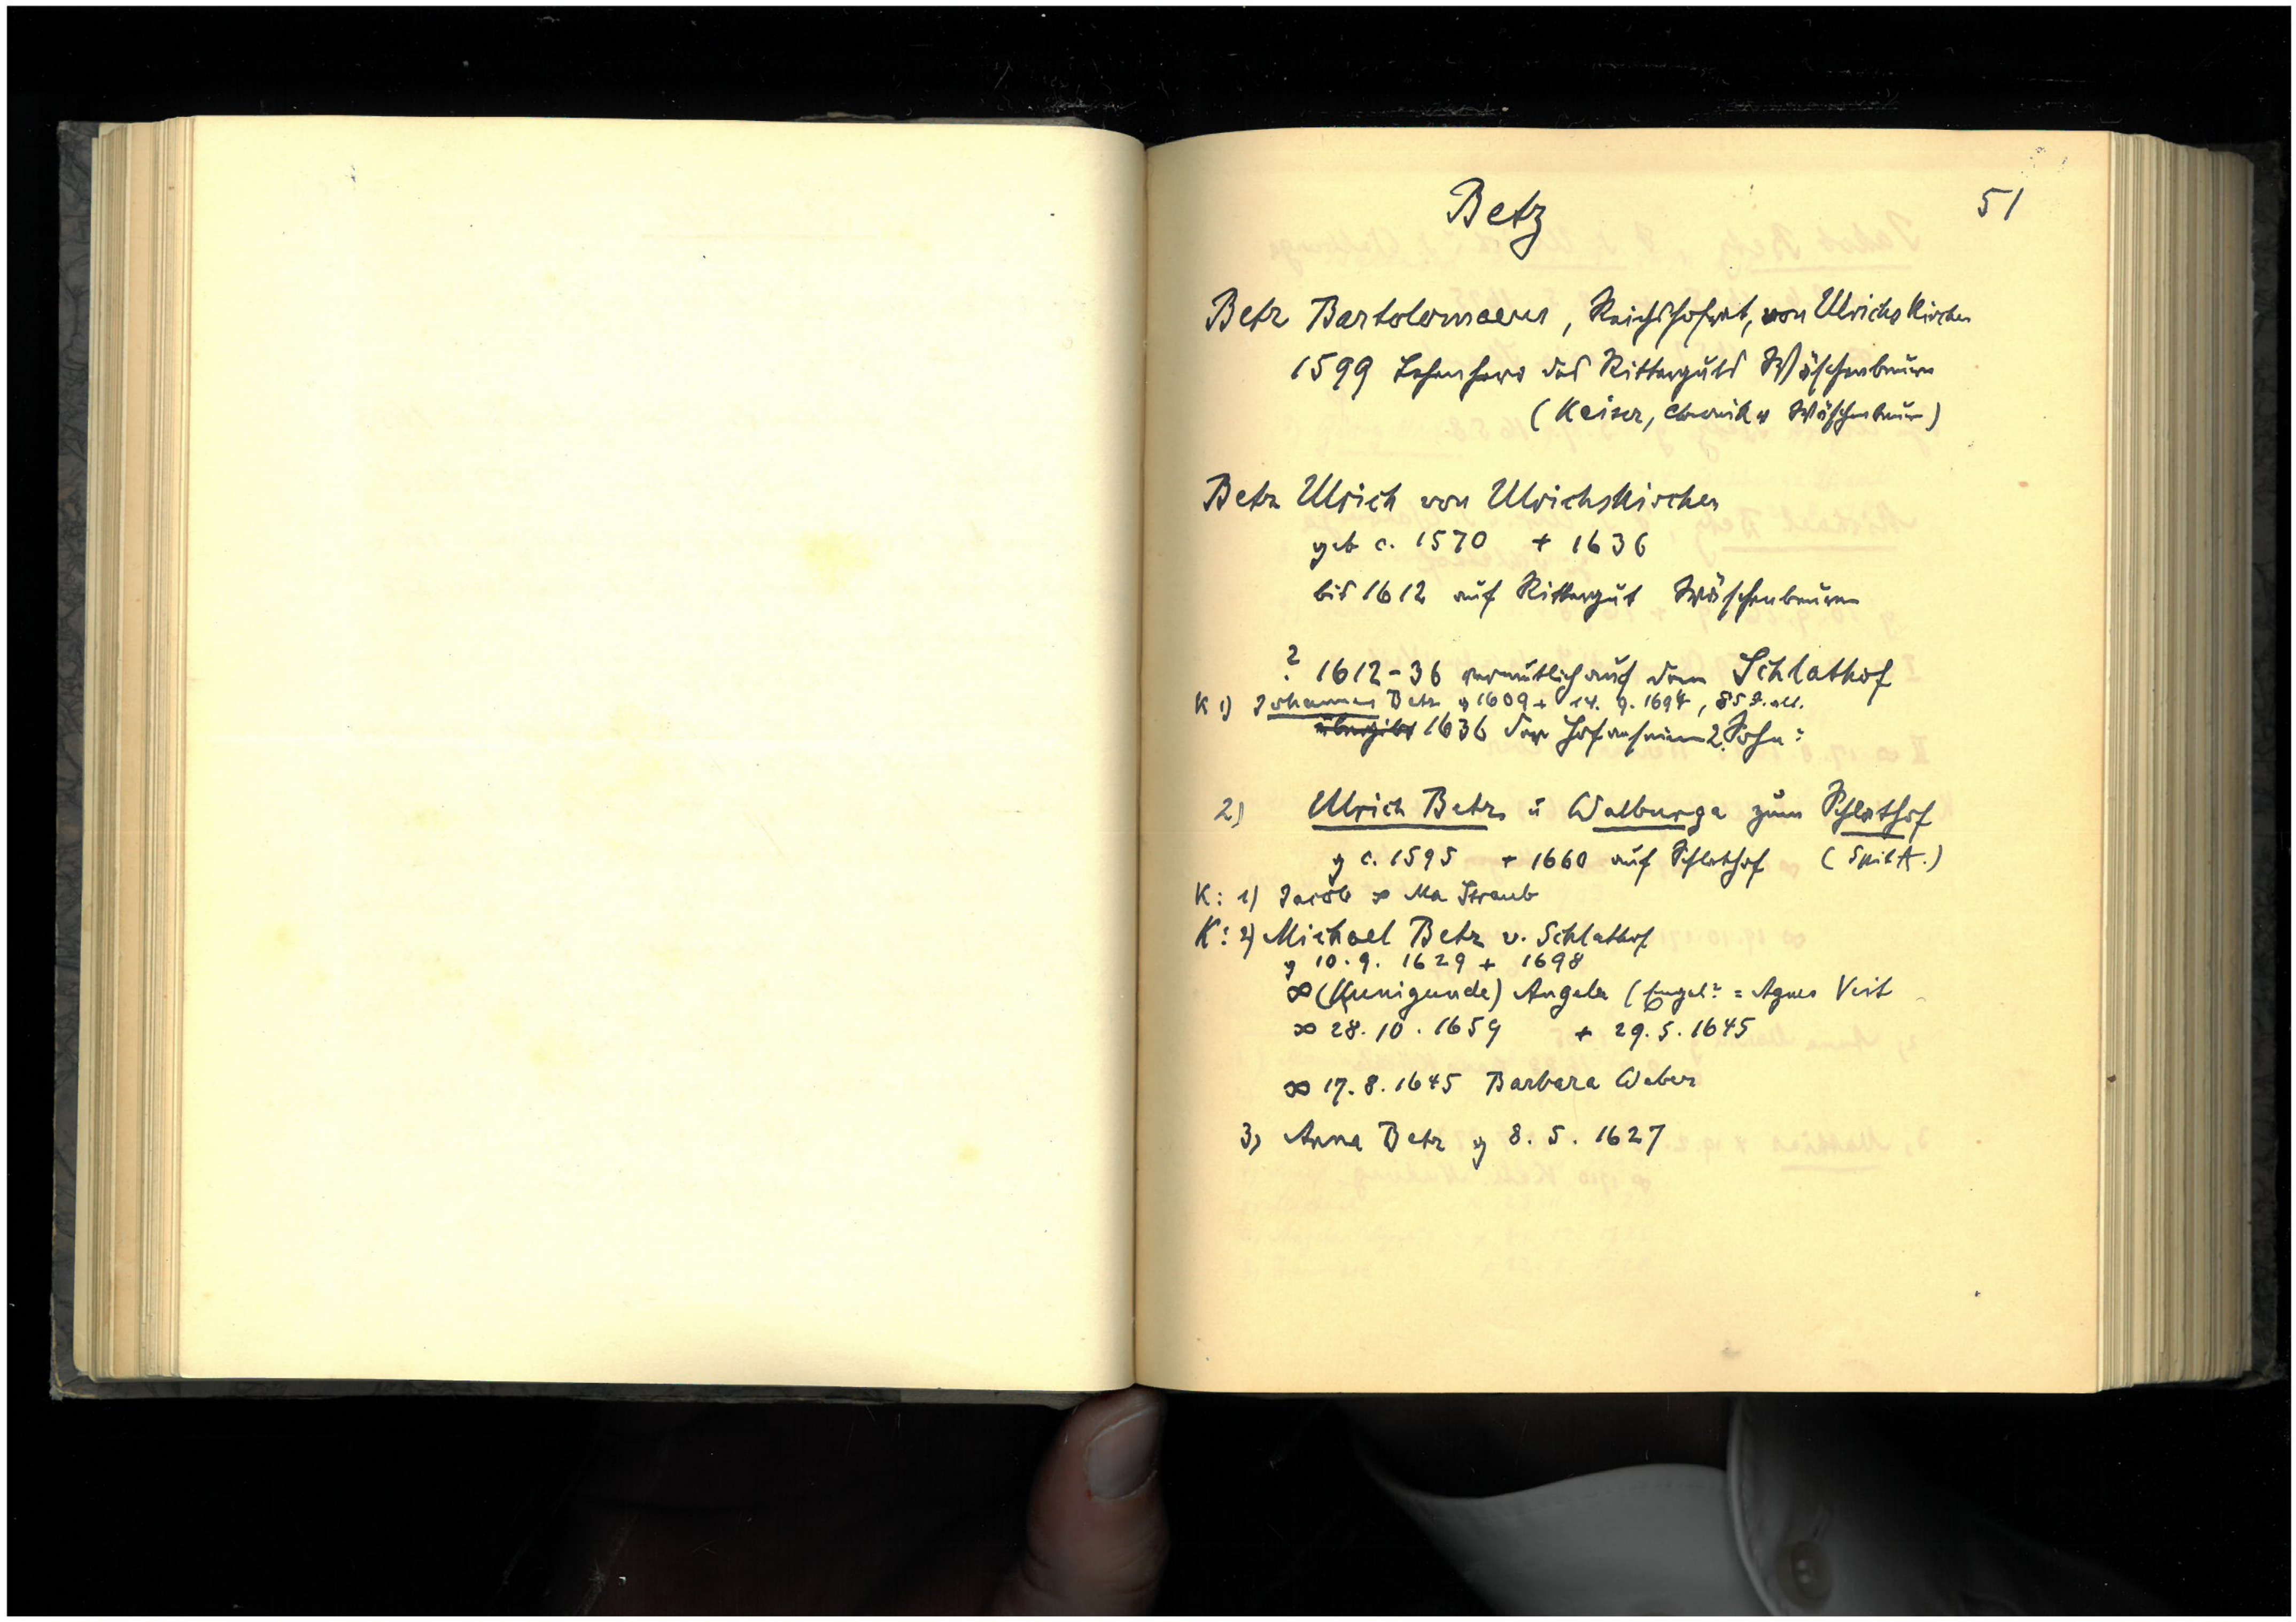 Betz 51
Betz Bartolomaeus, Reichshofrat, von Ulrichskirchen
1599 Lehenherr des Ritterguts Wäschenbeuren
(Keiser, Chronik v Wäschenbeuren)
Betz Ulrich von Ulrichskirchen
geb c. 1570 + 1636
bis 1612 auf Rittergut Wäschenbeuren
? 1612-36 vermutlich auf dem Schlathof
K 1) Johannes Betz g 1609 + 14. 9. 1694, 85 J. alt.
übergibt 1636 der Hof an seinen 2. Sohn:
2) Ulrich Betz u Walburga zum Schlathof
g c. 1595 + 1660 auf Schlathof (Spit A.)
K: 1) Jacob ∞ Ma Straub
K: 2) Michael Betz v. Schlathof
g 10. 9. 1629 + 1698
∞ (Kunigunde) Angela (Engel? = Agnes Veit
∞ 28. 10. 1659 + 29. 5. 1645
∞ 17. 8. 1645 Barbara Weber
3) Anna Betz g 8. 5. 1627